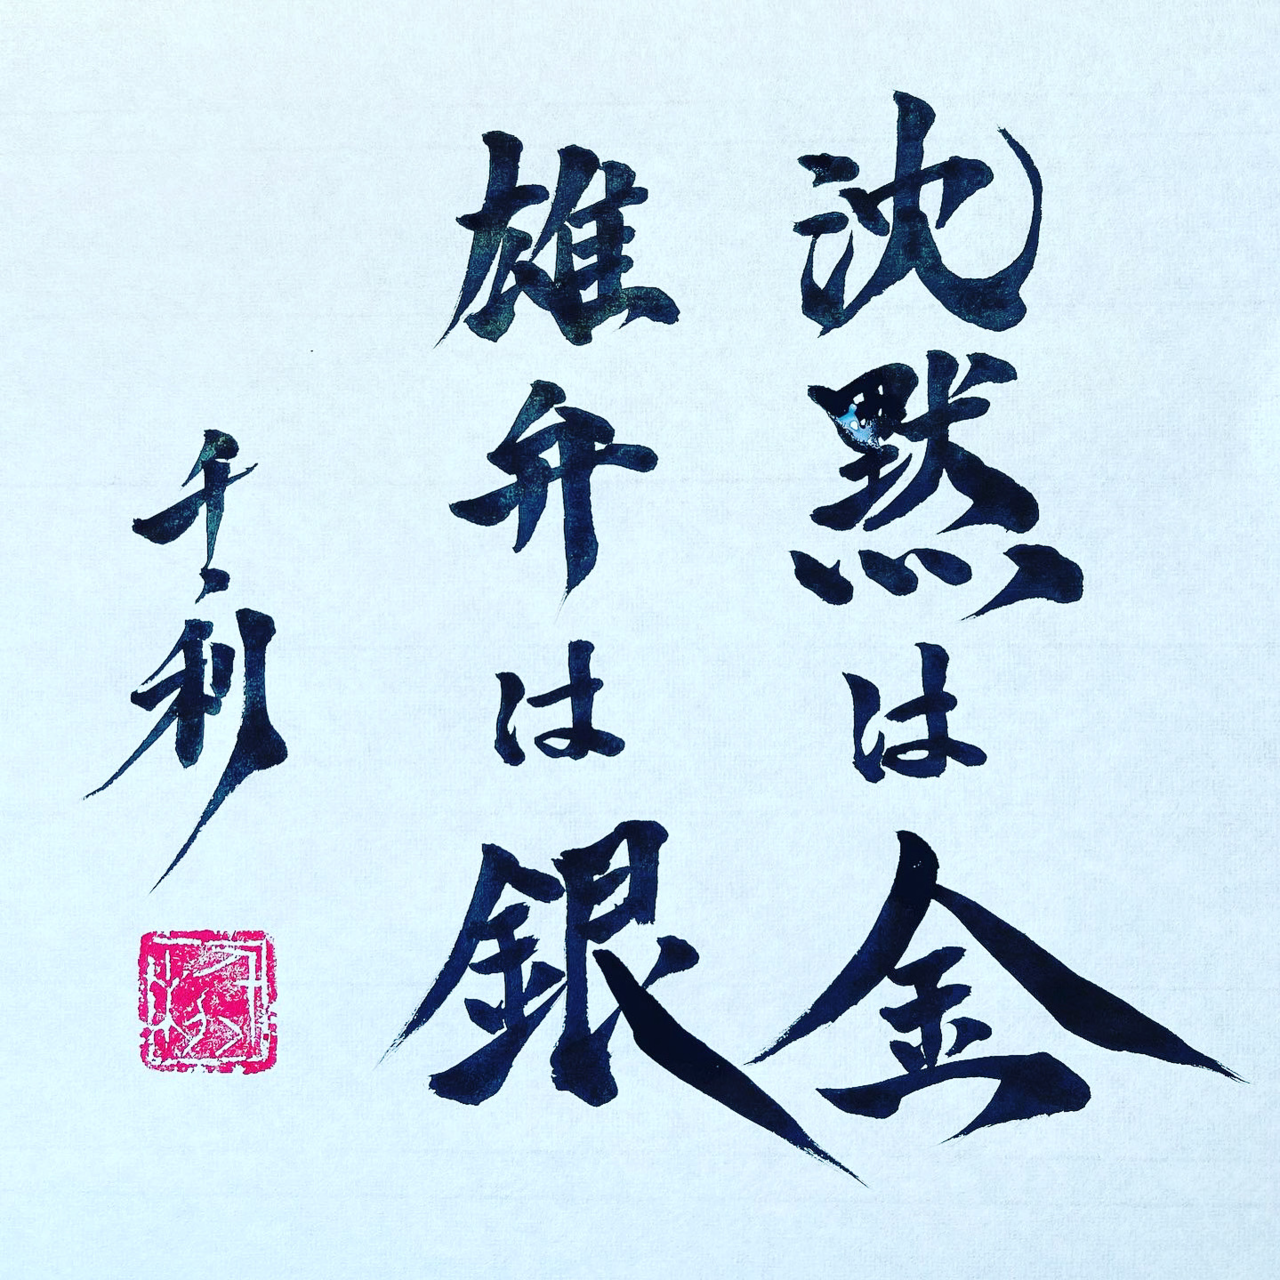 沈黙は金
雄弁は銀
千利